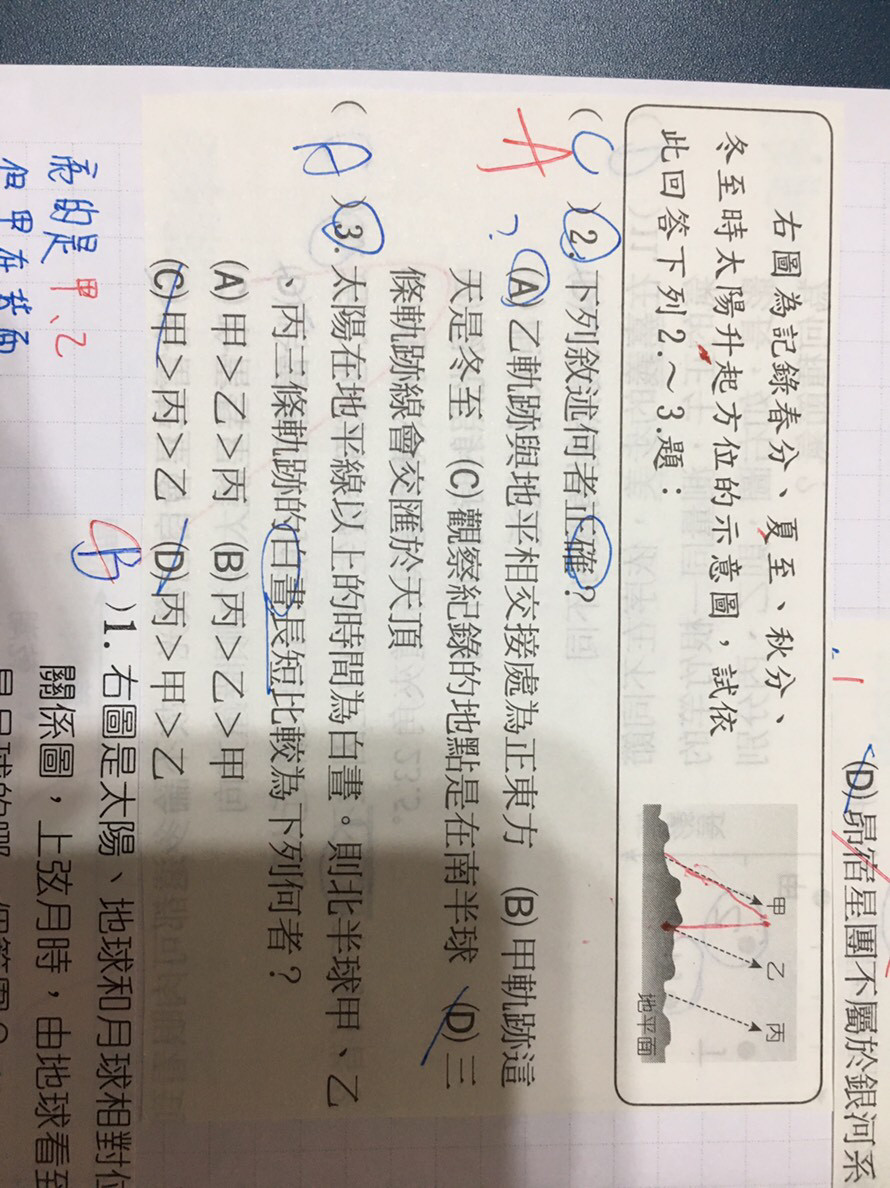 (D)昴宿星團不屬於銀河系
右圖為記錄春分、夏至、秋分、
冬至時太陽升起方位的示意圖，試依
此回答下列2.～3.題：
甲
乙
丙
地平面
(C)2.下列敘述何者正確？
A
？
(A)乙軌跡與地平相交接處為正東方 (B)甲軌跡這
天是冬至 (C)觀察紀錄的地點是在南半球 (D)三
條軌跡線會交匯於天頂
(A)3.太陽在地平線以上的時間為白晝。則北半球甲、乙
、丙三條軌跡的白晝長短比較為下列何者？
(A)甲＞乙＞丙 (B)丙＞乙＞甲
(C)甲＞丙＞乙 (D)丙＞甲＞乙
B )1.右圖是太陽、地球和月球相對位
關係圖，上弦月時，由地球看至
的是甲、乙
但甲在